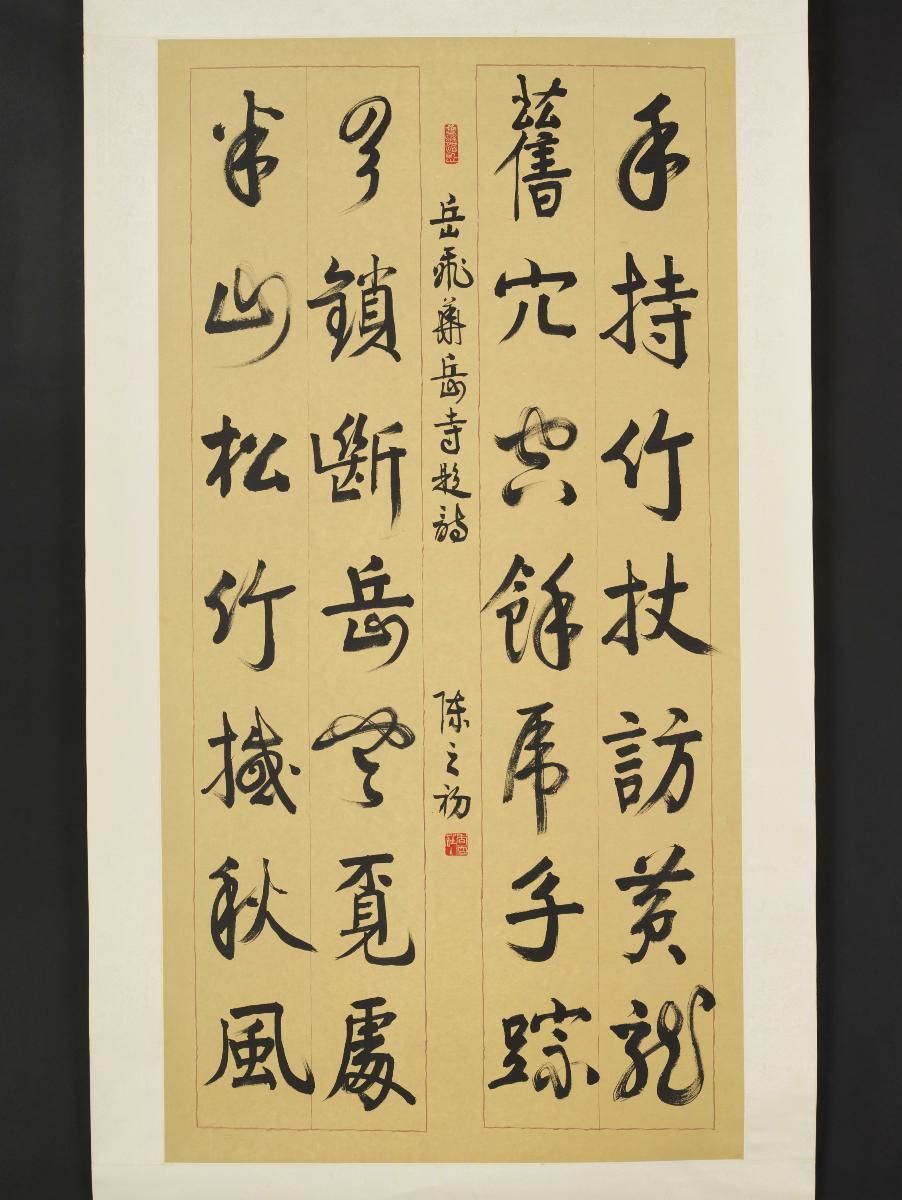 手持竹杖訪黃龍
舊穴空餘虎子踪
雲鎖斷岳無覓處
半山松竹撼秋風
岳飛華岳寺題詩
陳之初